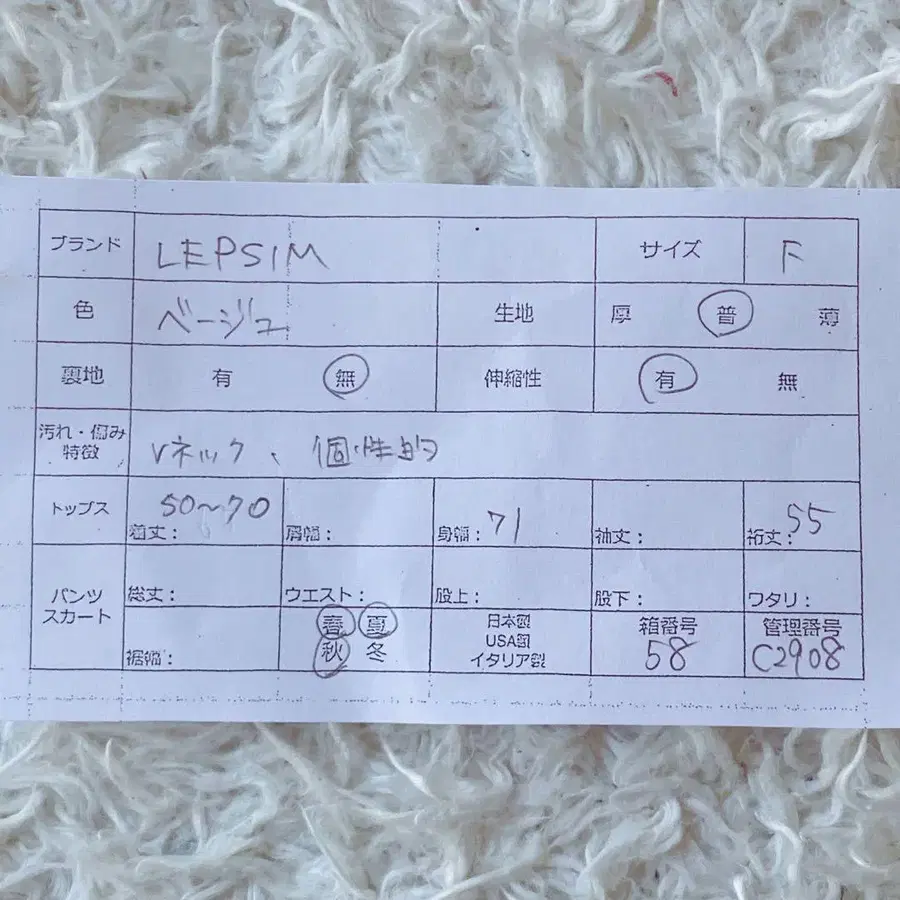 ブランド LEPSIM サイズ F
色 ベージュ 生地 厚 普 薄
裏地 有 無 伸縮性 有 無
汚れ・傷み
特徴 Vネック、個性的
トップス 着丈: 50~70 肩幅: 身幅: 71 袖丈: 裄丈: 55
パンツ
スカート 総丈: ウエスト: 股上: 股下: ワタリ:
裾幅: 春 夏
秋 冬
日本製
USA製
イタリア製
箱番号
58
管理番号
C2908